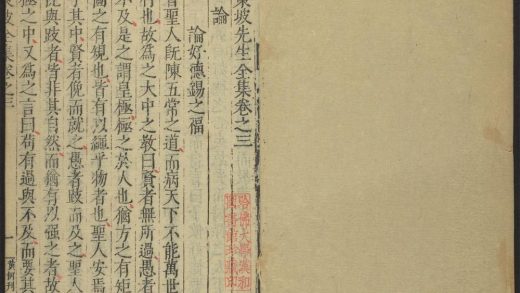 東坡先生全集卷之三
論
論好德錫之福
昔聖人既陳五常之道而病天下不能萬世
行也故為之大中之教曰賢者無所過愚者
不及是之謂皇極極之於人也猶方之有矩
圓之有規也皆有以繩乎物者也聖人安焉
乎其中賢者俛而就之愚者跂而及之聖人
與跂者皆非其自然而猶有以強之者故
極之中又為之言曰苟有過與不及而要其
坡全集卷之三
一
黃何刊